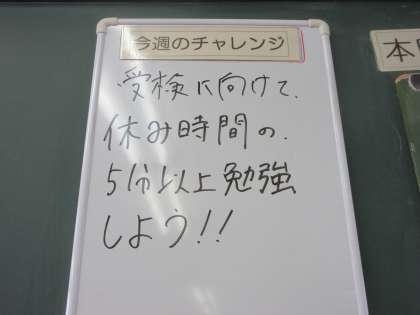 今週のチャレンジ
受検に向けて、
休み時間の、
5分以上勉強
しよう!!
本